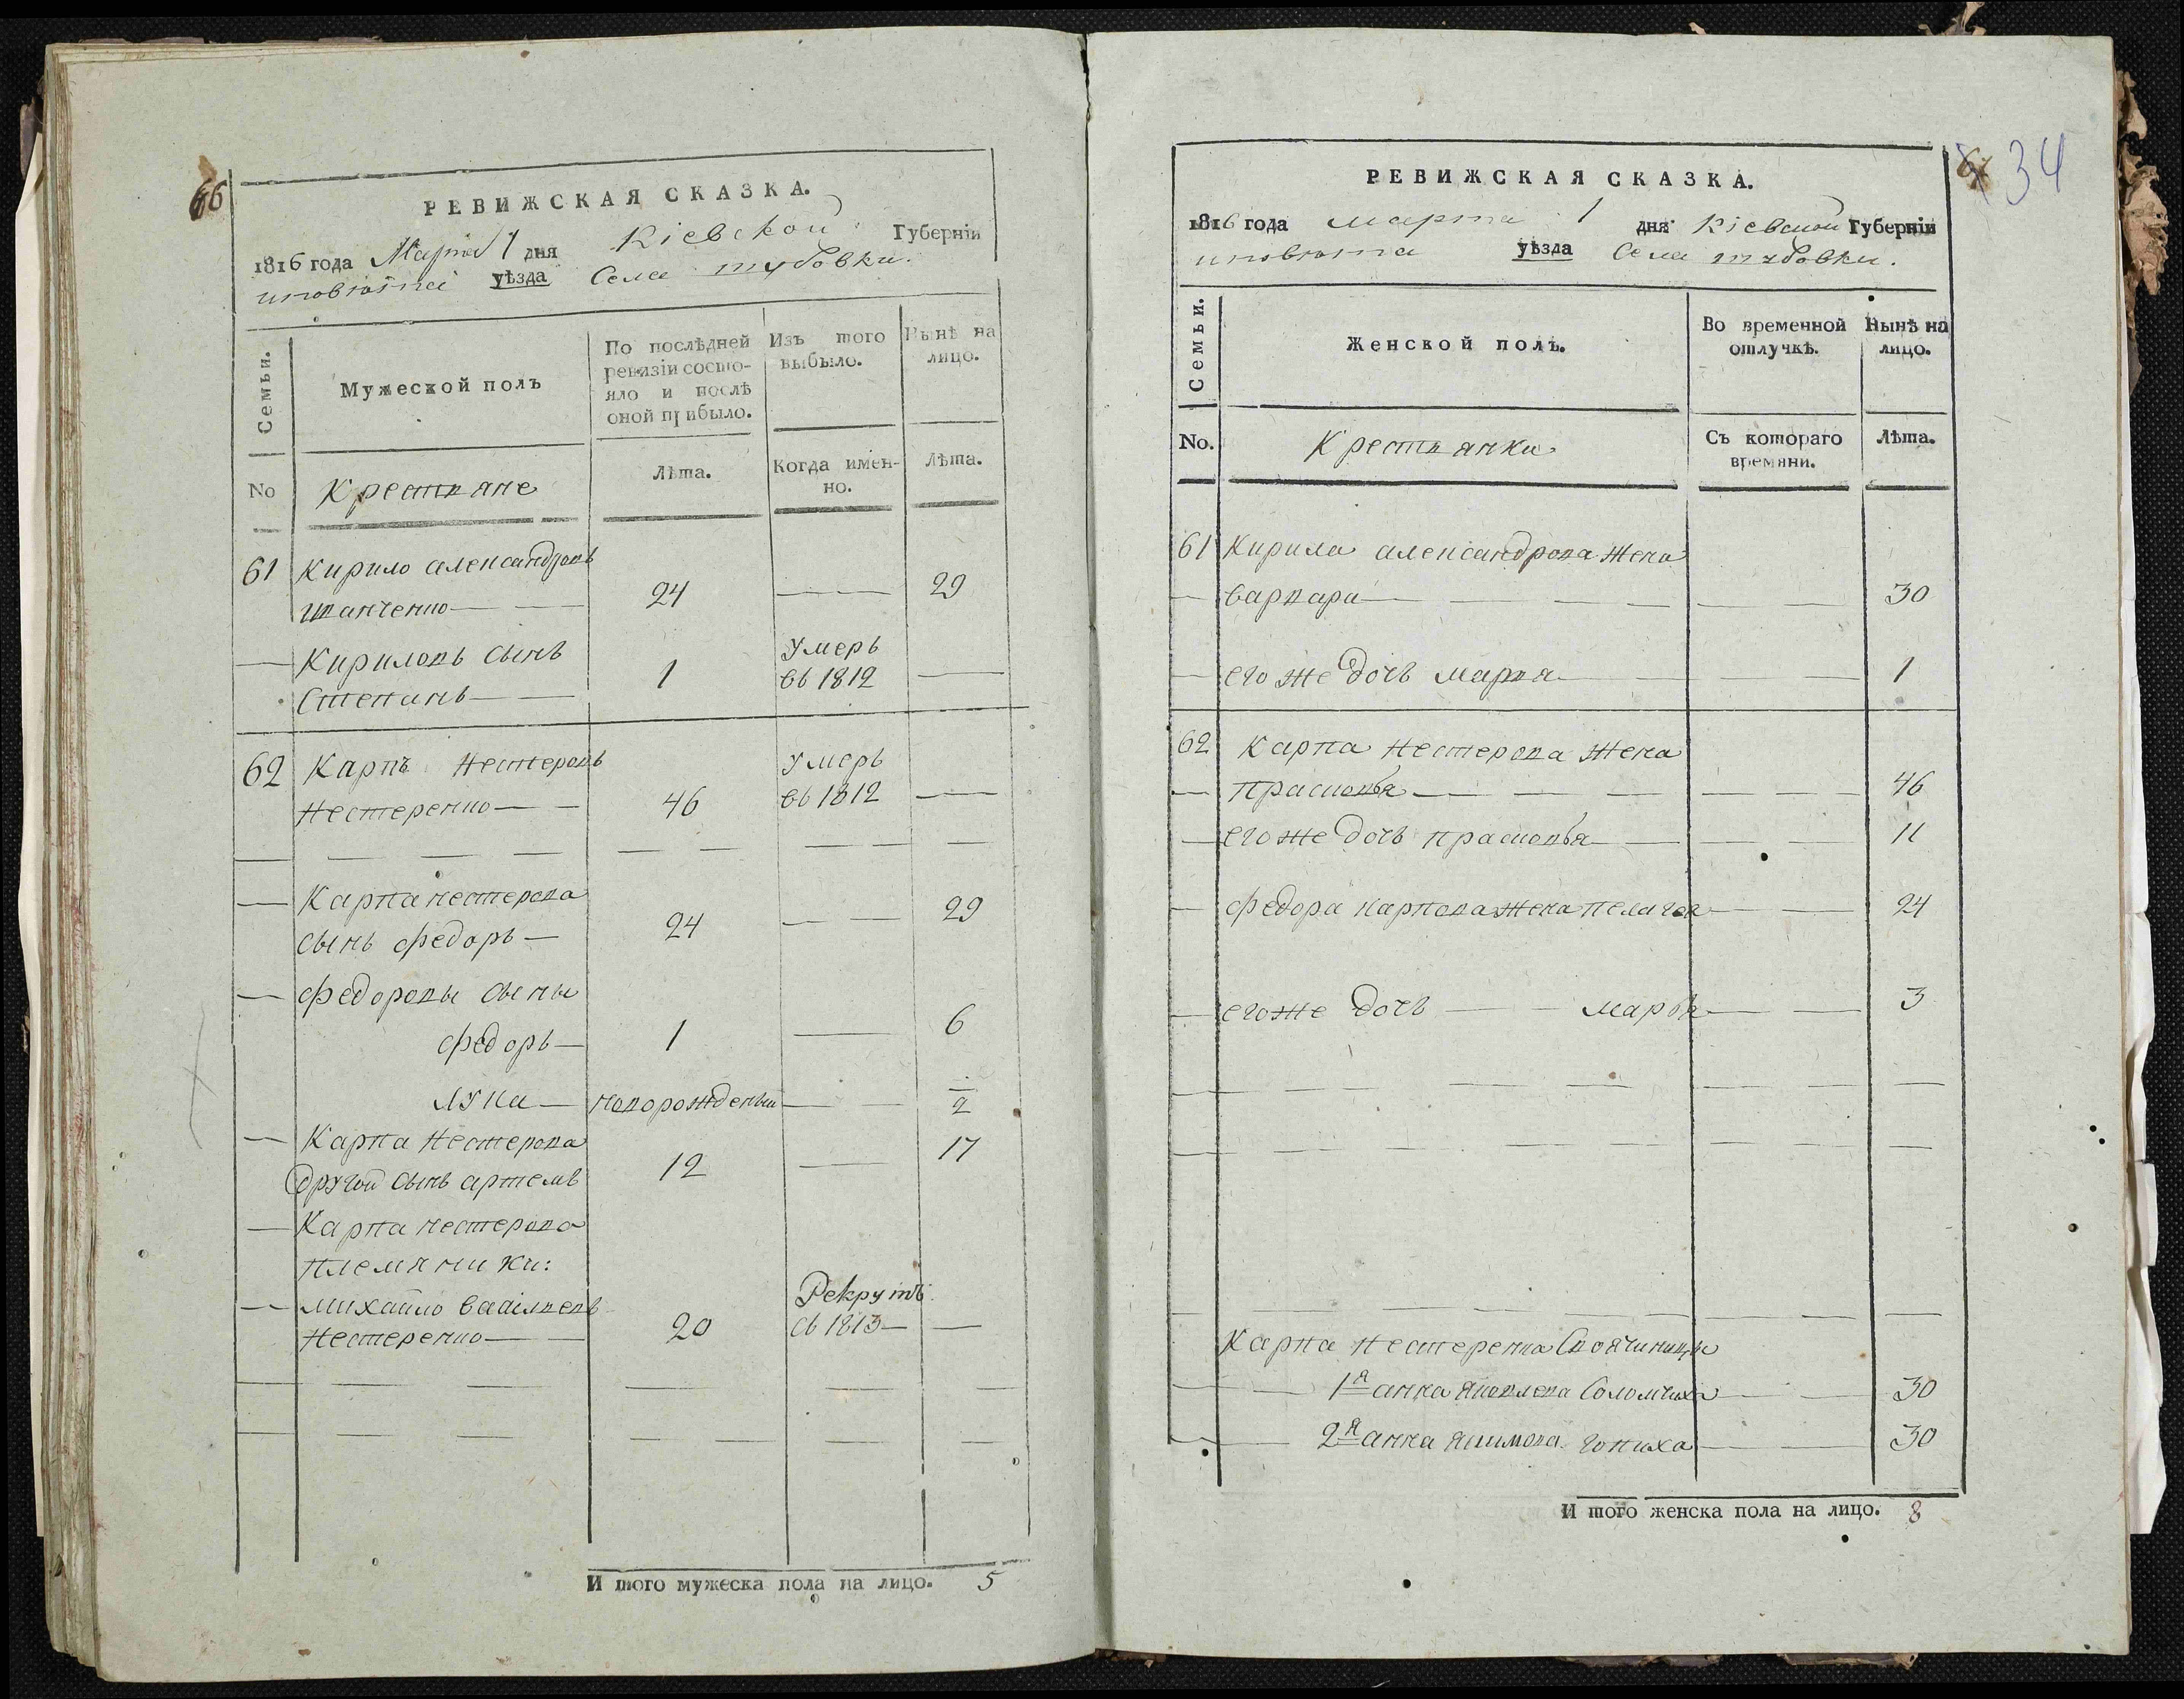 66
РЕВИЖСКАЯ СКАЗКА.
1816 года Марта 1 дня Кіевской Губерніи
уѣзда Села
Семьи.
Мужеской полъ
По послѣдней ревизіи состо-
яло и послѣ
оной прибыло.
Изъ того
выбыло.
Нынѣ на
лицо.
No
Крестьяне
Лѣта.
Когда имен-
но.
Лѣта.
61 Кирило александровъ
24 — — 29
— Кириловъ сынъ
Степанъ — 1 Умеръ въ 1812 —
62 Карпъ Нестеровъ
Нестеренко — — 46 Умеръ въ 1812 —
— Карпа нестерова
сынъ федоръ — 24 — — 29
— федоровы сыны
федоръ — 1 — 6
лука — новорожденный — — 2
— Карпа Нестерова
другой сынъ артемъ 12 — 17
— Карпа нестерова
племянники:
— михайло василевъ
Нестеренко — — 20 Рекрутъ съ 1813 — —
И того мужеска пола на лицо. 5
34
РЕВИЖСКАЯ СКАЗКА.
1816 года марта 1 дня Кіевской Губерніи
уѣзда Села
Семьи.
Женской полъ.
Во временной
отлучкѣ.
Нынѣ на
лицо.
No.
Крестьянки
Съ котораго
времяни.
Лѣта.
61 Кирила александрова жена
варвара — — — — — — 30
— его же дочь марья — — — 1
62 Карпа Нестерова жена
— прасковья — — — — — — 46
— его же дочь прасковья — — — — 11
— федора карпова жена пелагея — — 24
— его же дочь — — марья — — 3
Карпа Нестеренка своячиницы
1я анна яковлева Соломчиха — — 30
2я анна якимова гониха — — 30
И того женска пола на лицо. 8